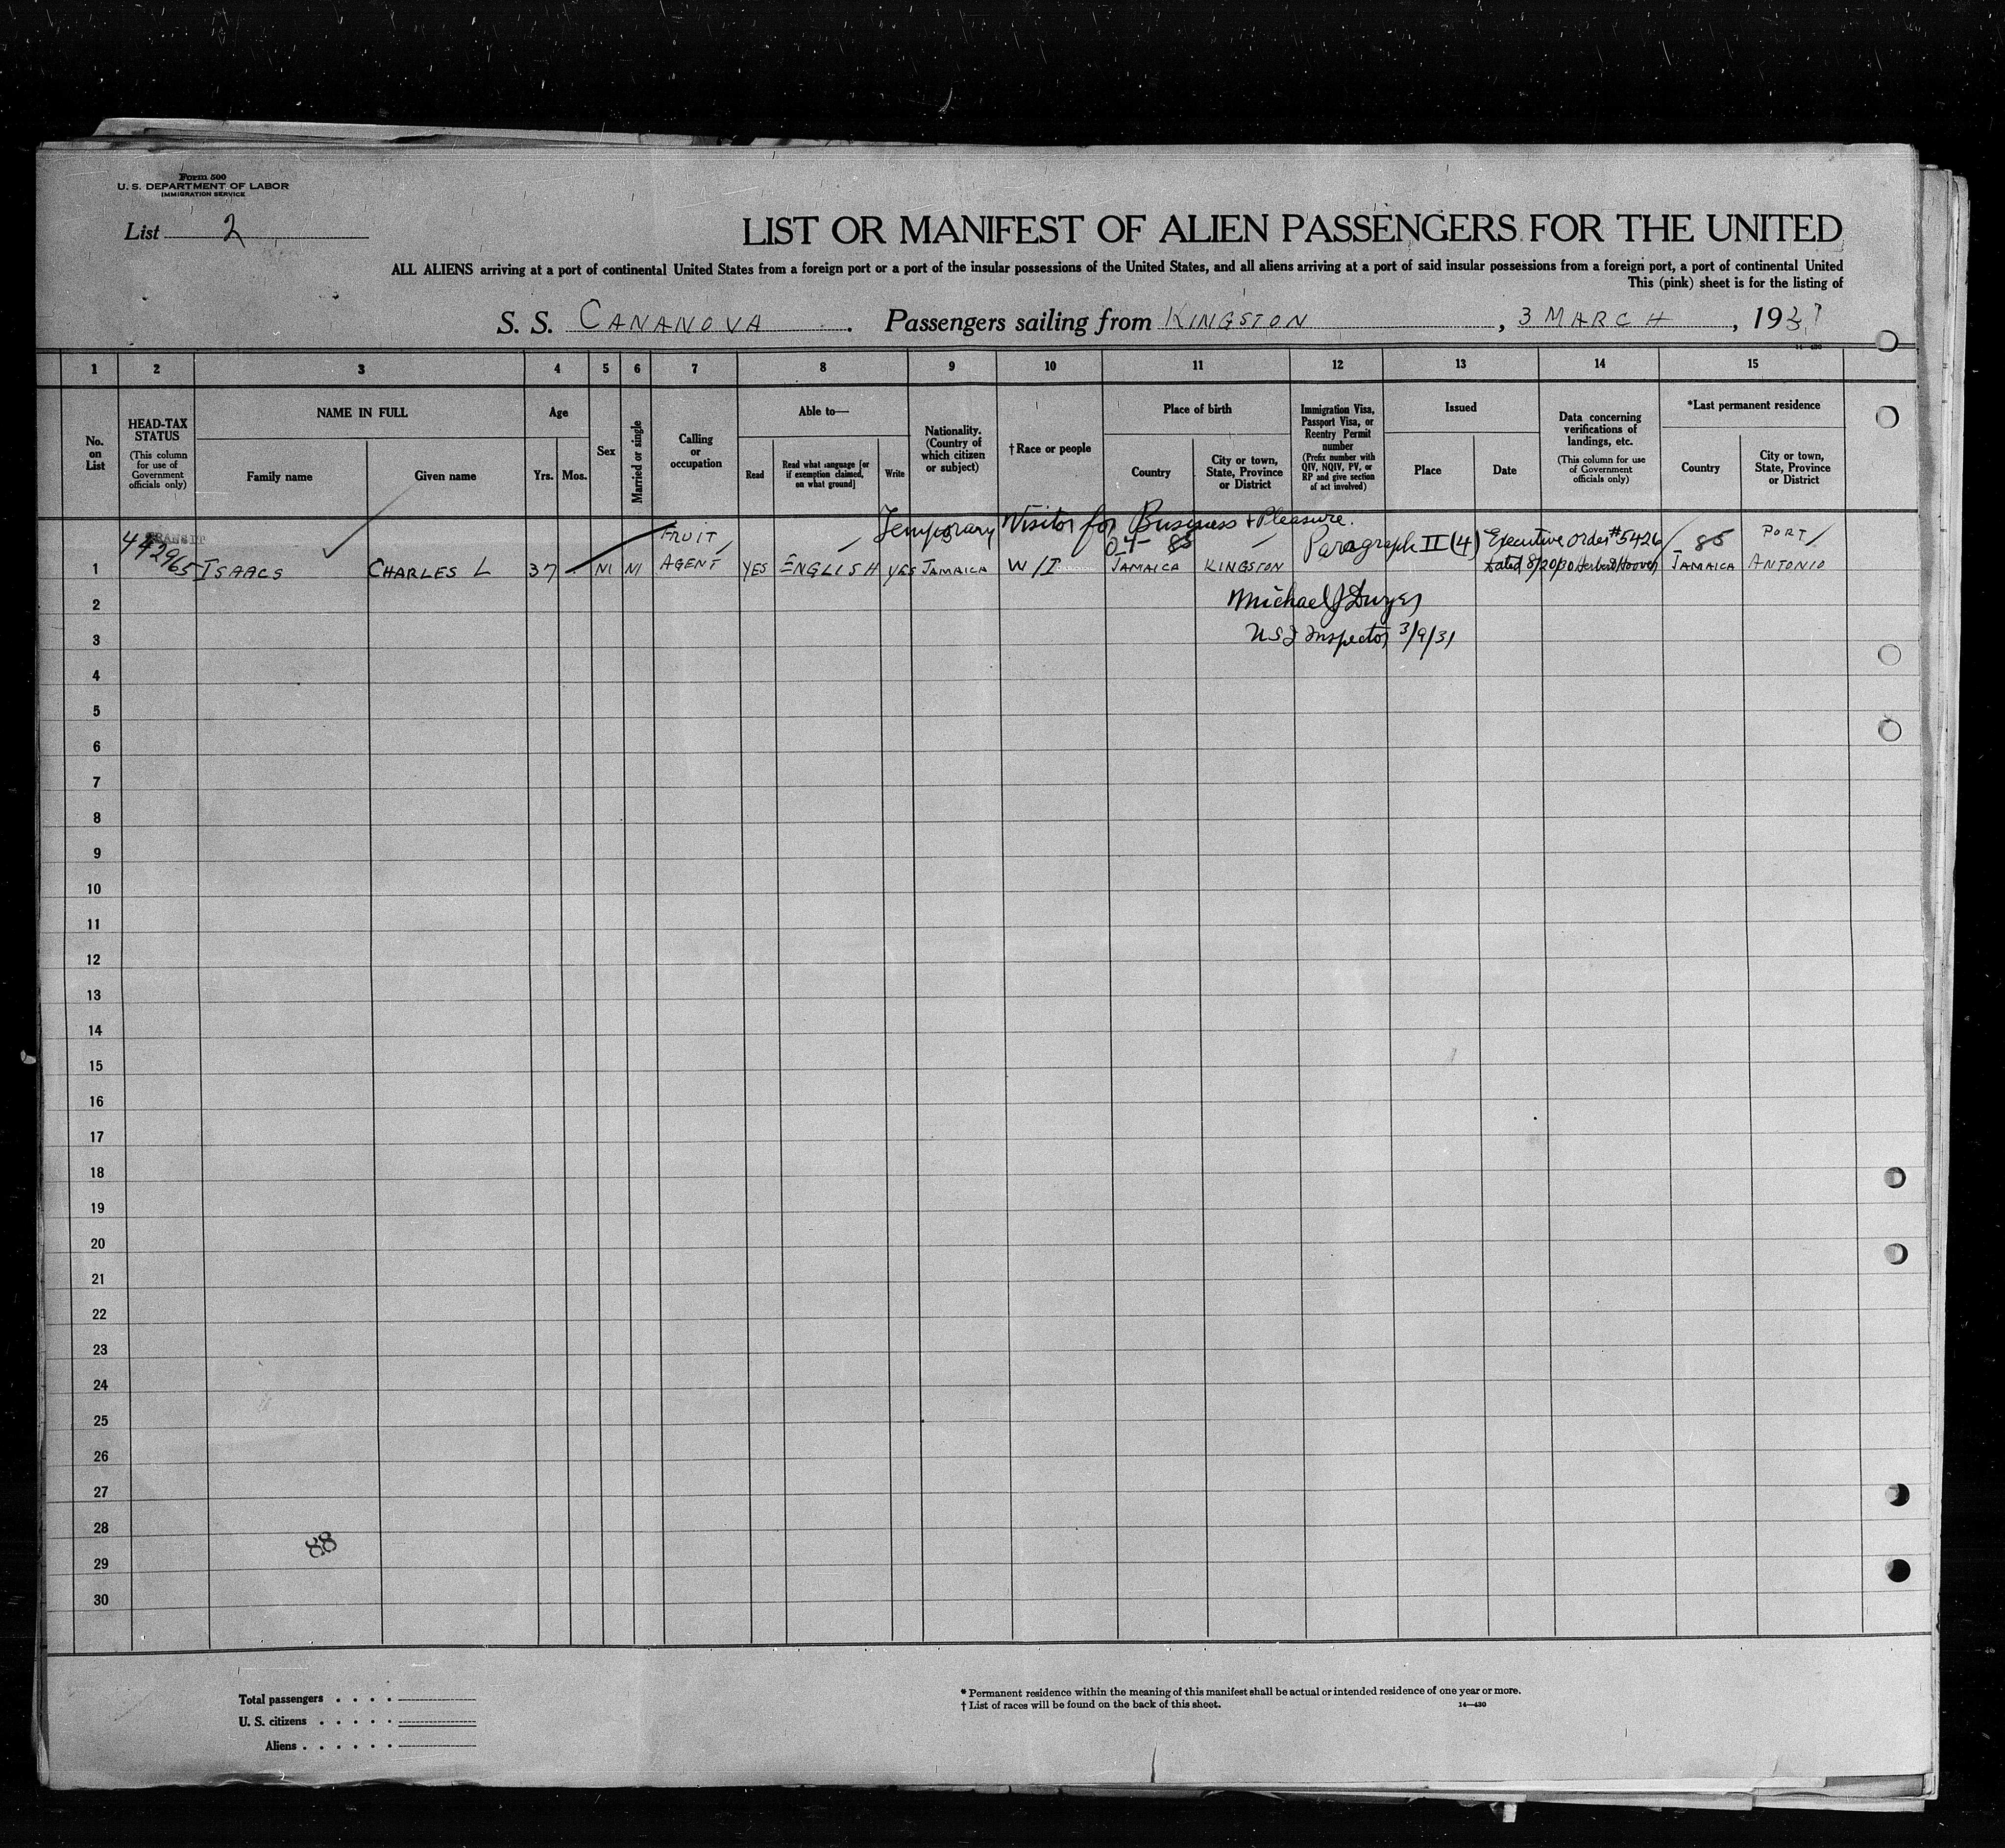 Form 500
U. S. DEPARTMENT OF LABOR
IMMIGRATION SERVICE
List 2
LIST OR MANIFEST OF ALIEN PASSENGERS FOR THE UNITED
ALL ALIENS arriving at a port of continental United States from a foreign port or a port of the insular possessions of the United States, and all aliens arriving at a port of said insular possessions from a foreign port, a port of continental United
This (pink) sheet is for the listing of
S. S. CANANOVA. Passengers sailing from KINGSTON, 3 MARCH, 1931
14-430
1 2 3 4 5 6 7 8 9 10 11 12 13 14 15
No. on List
HEAD-TAX STATUS
(This column for use of Government officials only)
NAME IN FULL
Family name Given name
Age
Yrs. Mos.
Sex
Married or single
Calling or occupation
Able to—
Read
Read what language [or if exemption claimed, on what ground]
Write
Nationality. (Country of which citizen or subject)
†Race or people
Place of birth
Country
City or town, State, Province or District
Immigration Visa, Passport Visa, or Reentry Permit number
(Prefix number with QIV, NQIV, PV, or RP and give section of act involved)
Issued
Place Date
Data concerning verifications of landings, etc.
(This column for use of Government officials only)
*Last permanent residence
Country
City or town, State, Province or District
Temporary Visitor for Business + Pleasure.
TRANSIT
442965
FRUIT
04- 85
Paragraph II (4) Executive Order #5426 85 PORT
1 ISAACS CHARLES L 37 M M AGENT YES ENGLISH YES JAMAICA W/I JAMAICA KINGSTON dated 8/20/30 Herbert Hoover JAMAICA ANTONIO
2 Michael J Dwyer
3 USI Inspector 3/9/31
4
5
6
7
8
9
10
11
12
13
14
15
16
17
18
19
20
21
22
23
24
25
26
27
28
88
29
30
Total passengers . . . .
U. S. citizens . . . . .
Aliens . . . . . .
* Permanent residence within the meaning of this manifest shall be actual or intended residence of one year or more.
† List of races will be found on the back of this sheet. 14—430